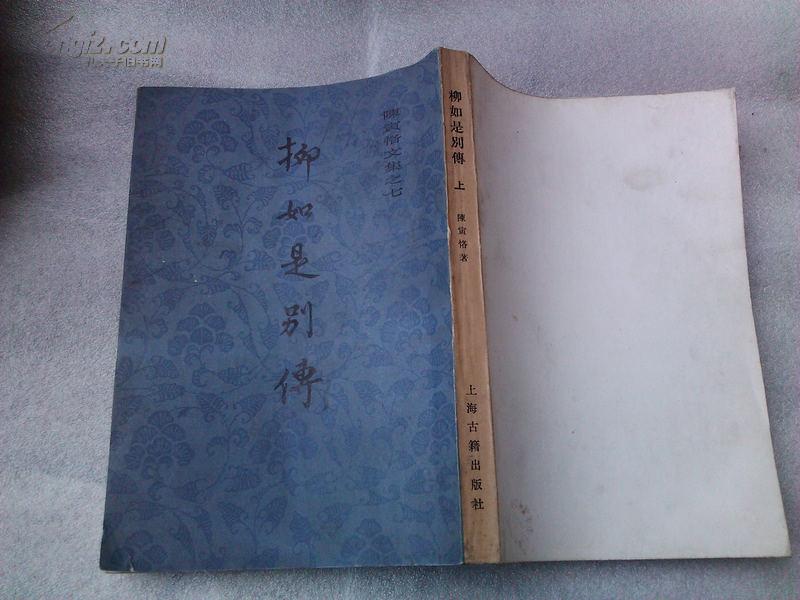 kongfz.com
孔夫子旧书网
陳寅恪文集之七
柳如是別傳
柳如是別傳 上 陳寅恪著 上海古籍出版社